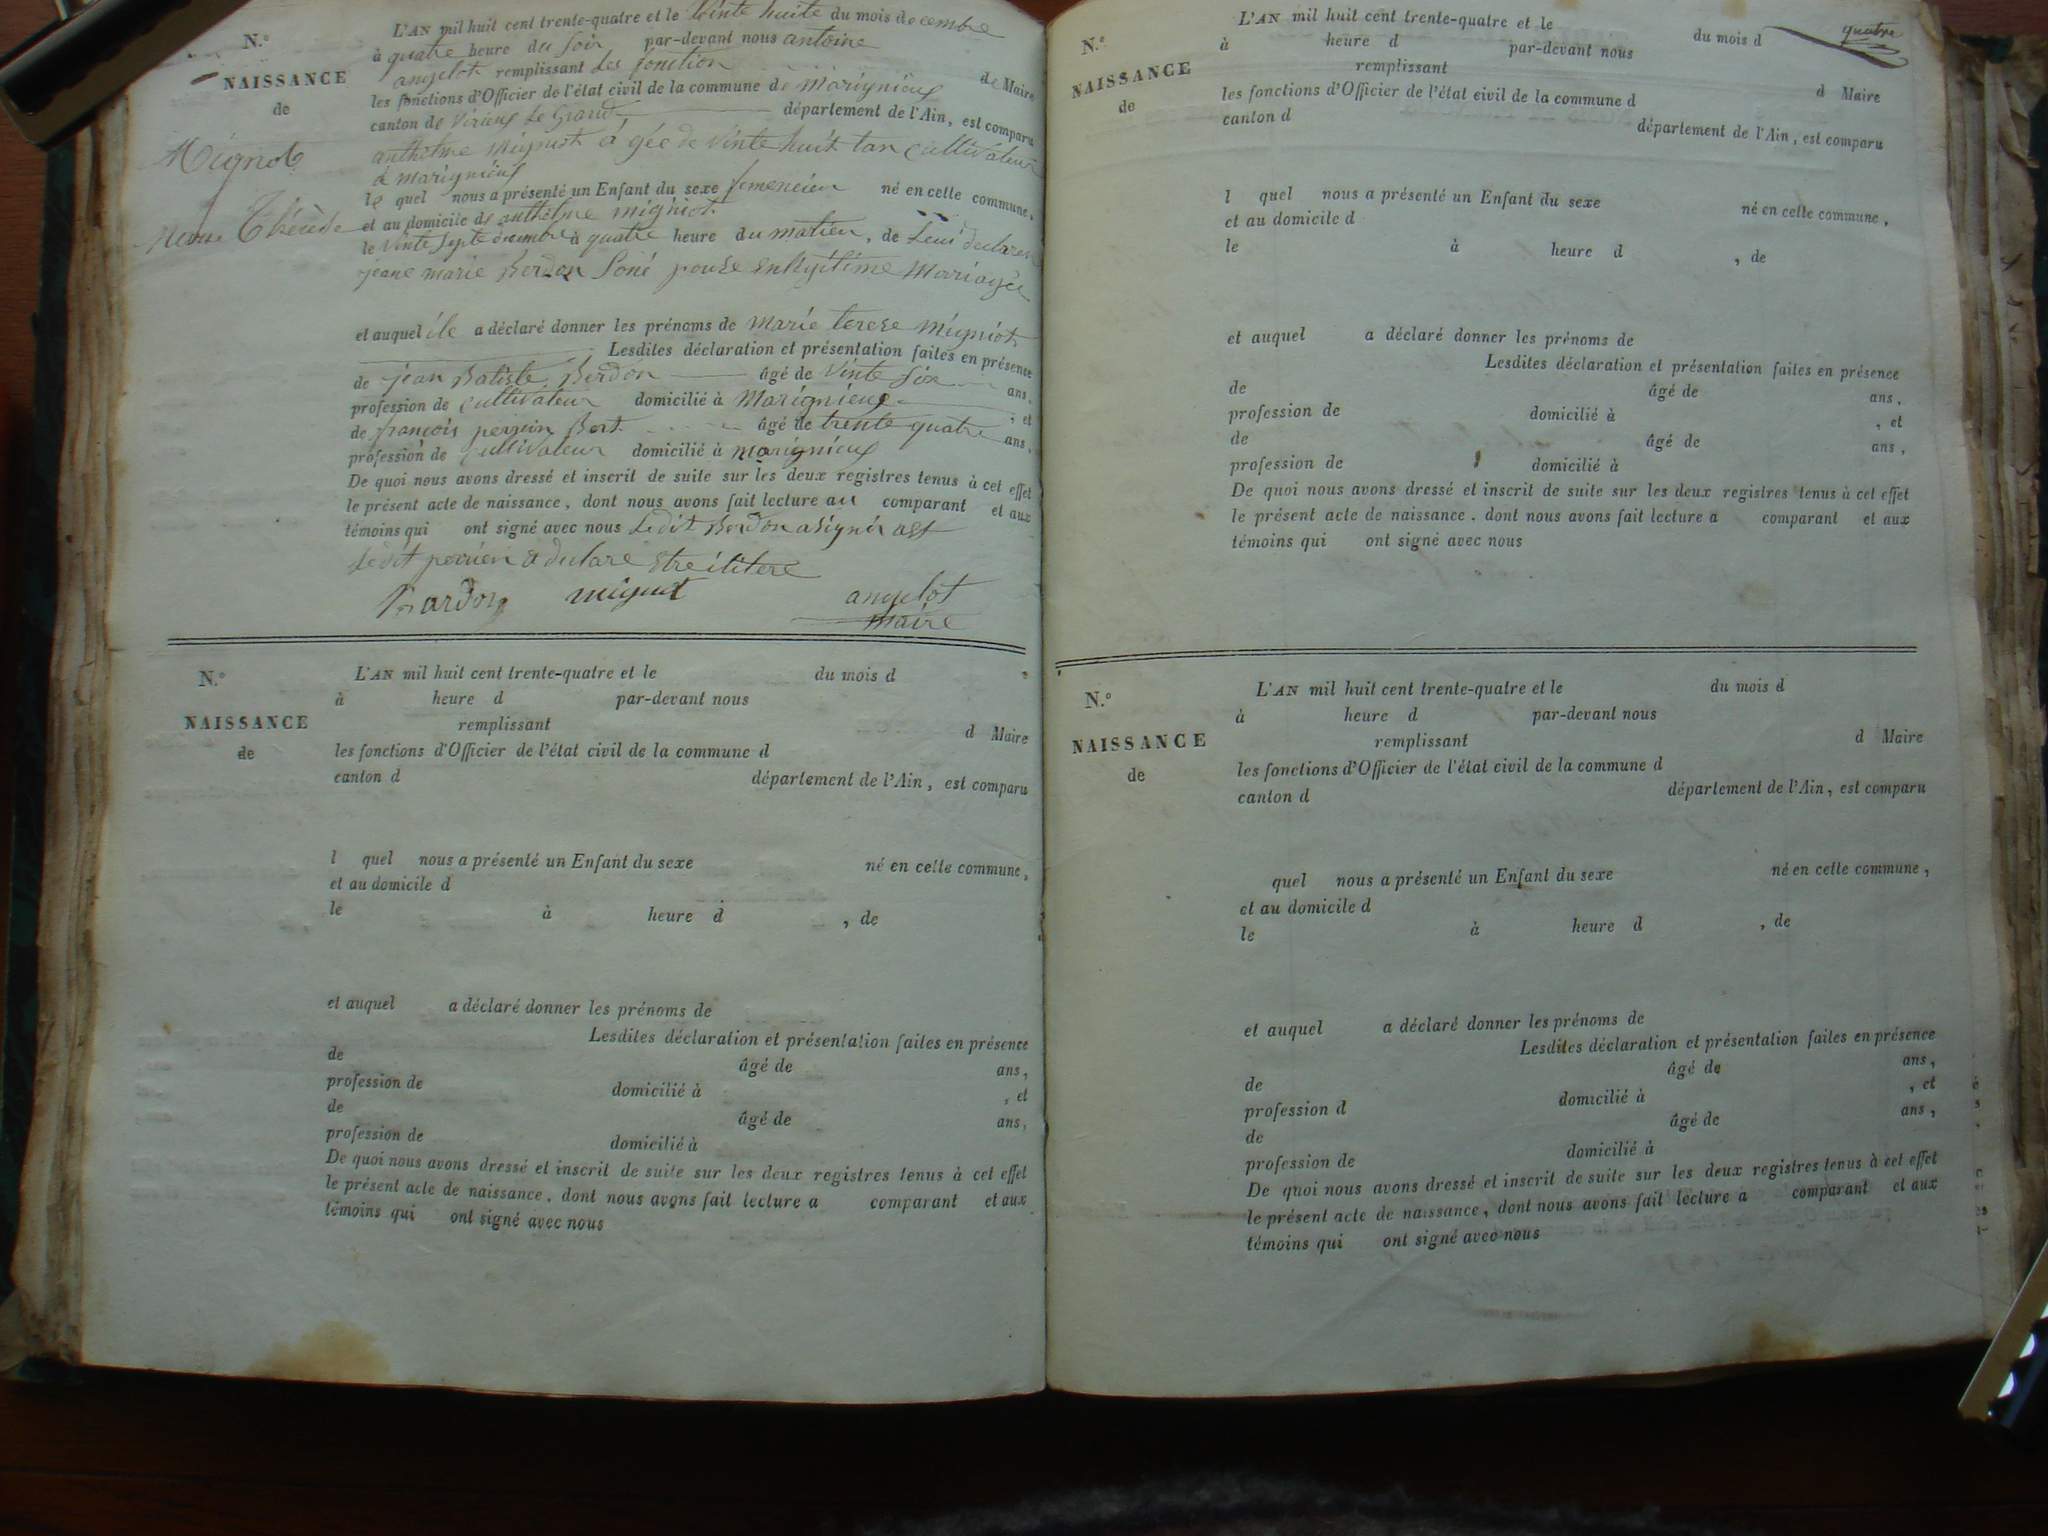 N.º
NAISSANCE
de
Mignot
Marie Thérèse
L'AN mil huit cent trente-quatre et le vinte huite du mois decembre
à quatre heure du soir par-devant nous antoine
angelot remplissant les fonction de Maire
les fonctions d'Officier de l'état civil de la commune de marignieux
canton de virieux le grand département de l'Ain, est comparu
anthelme migniot â gée de vinte huit tan cultivateur
à marignieux
le quel nous a présenté un Enfant du sexe femencien né en cette commune,
et au domicile de anthelme migniot
le vinte septe decembre à quatre heure du matien, de Leui declarer
jeane marie Berdon Soné pouse enlegitime Mariagee
et auquel ile a déclaré donner les prénoms de marie terese migniot
Lesdites déclaration et présentation faites en présence
de jean Batiste Berdon âgé de vinte six ans,
profession de cultivateur domicilié à Marignieux , et
de françois perrin Bert âgé de trente quatre ans,
profession de cultivateur domicilié à marignieux
De quoi nous avons dressé et inscrit de suite sur les deux registres tenus à cet effet
le présent acte de naissance, dont nous avons fait lecture au comparant et aux
témoins qui ont signé avec nous Ledit Berdon asignér
ledit perrien a declare etre ilitere
Bardon mignot angelot
maire
N.º
NAISSANCE
de
L'AN mil huit cent trente-quatre et le du mois d
à heure d par-devant nous
remplissant d Maire
les fonctions d'Officier de l'état civil de la commune d
canton d département de l'Ain, est comparu
l quel nous a présenté un Enfant du sexe né en cette commune,
et au domicile d
le à heure d , de
et auquel a déclaré donner les prénoms de
Lesdites déclaration et présentation faites en présence
de âgé de ans,
profession de domicilié à , et
de âgé de ans,
profession de domicilié à
De quoi nous avons dressé et inscrit de suite sur les deux registres tenus à cet effet
le présent acte de naissance, dont nous avons fait lecture a comparant et aux
témoins qui ont signé avec nous
quatre
N.º
NAISSANCE
de
L'AN mil huit cent trente-quatre et le du mois d
à heure d par-devant nous
remplissant d Maire
les fonctions d'Officier de l'état civil de la commune d
canton d département de l'Ain, est comparu
l quel nous a présenté un Enfant du sexe né en cette commune,
et au domicile d
le à heure d , de
et auquel a déclaré donner les prénoms de
Lesdites déclaration et présentation faites en présence
de âgé de ans,
profession de domicilié à , et
de âgé de ans,
profession de domicilié à
De quoi nous avons dressé et inscrit de suite sur les deux registres tenus à cet effet
le présent acte de naissance, dont nous avons fait lecture a comparant et aux
témoins qui ont signé avec nous
N.º
NAISSANCE
de
L'AN mil huit cent trente-quatre et le du mois d
à heure d par-devant nous
remplissant d Maire
les fonctions d'Officier de l'état civil de la commune d
canton d département de l'Ain, est comparu
quel nous a présenté un Enfant du sexe né en cette commune,
et au domicile d
le à heure d , de
et auquel a déclaré donner les prénoms de
Lesdites déclaration et présentation faites en présence
de âgé de ans,
profession d domicilié à , et
de âgé de ans,
profession de domicilié à
De quoi nous avons dressé et inscrit de suite sur les deux registres tenus à cet effet
le présent acte de naissance, dont nous avons fait lecture a comparant et aux
témoins qui ont signé avec nous